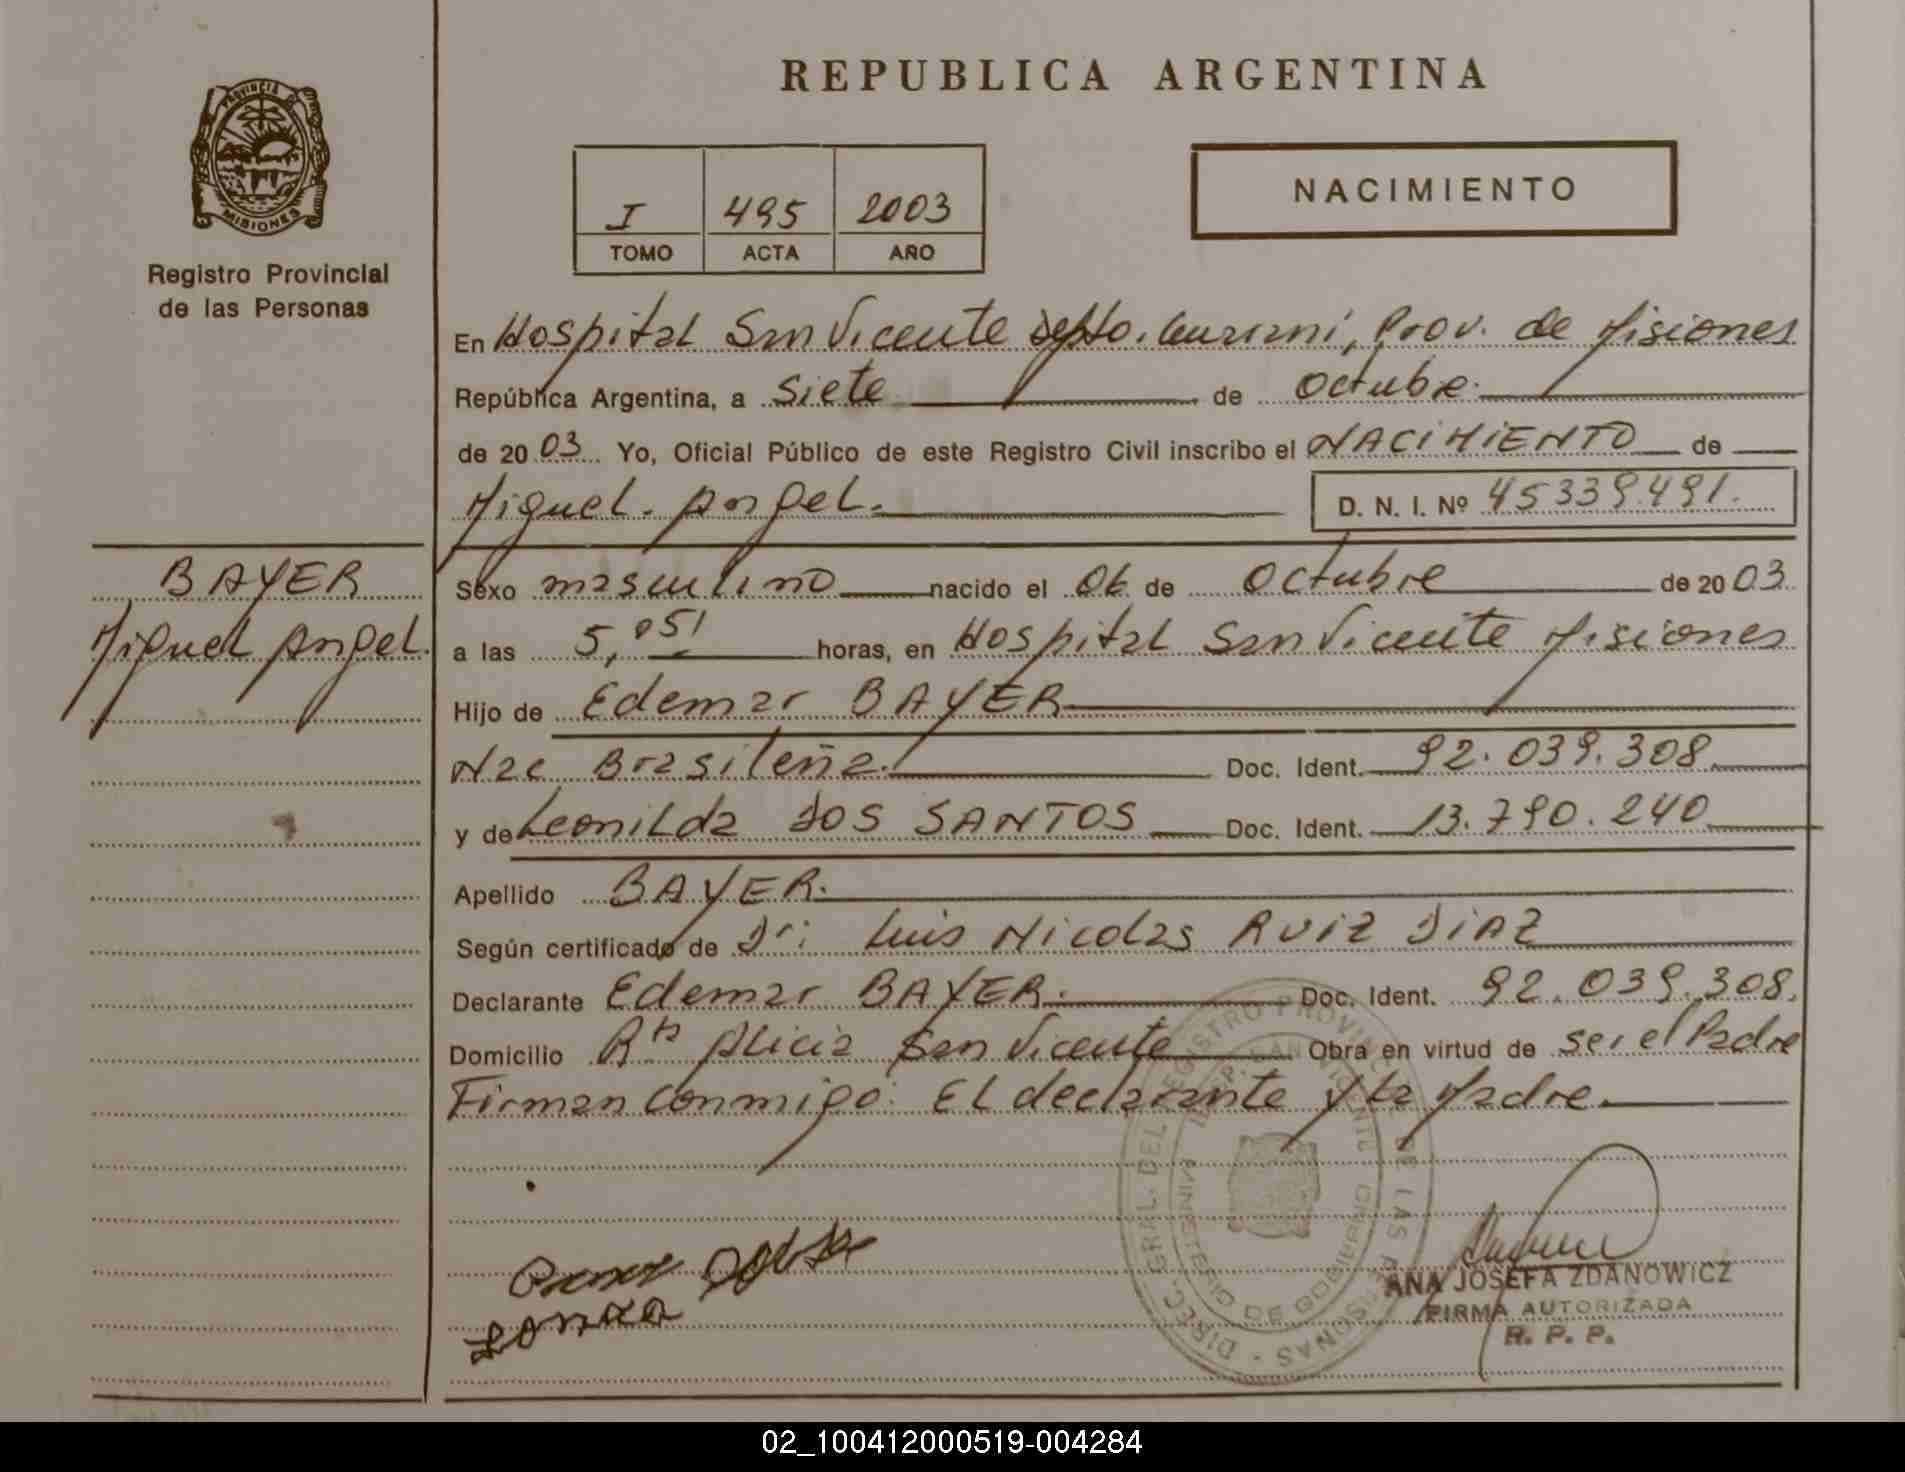 REPUBLICA ARGENTINA
PROVINCIA DE
MISIONES
Registro Provincial
de las Personas
I 495 2003
TOMO ACTA AÑO
NACIMIENTO
En Hospital San Vicente Depto. Guarani, Prov. de Misiones
República Argentina, a Siete de Octubre.
de 2003 Yo, Oficial Público de este Registro Civil inscribo el NACIMIENTO de
Miguel Angel. D. N. I. Nº 45339.491.
BAYER
Miguel Angel.
Sexo masculino nacido el 06 de Octubre de 2003
a las 5,05' horas, en Hospital San Vicente Misiones
Hijo de Edemar BAYER
Nac Brasileña. Doc. Ident. 92.039.308
y de Leonilda DOS SANTOS Doc. Ident. 13.790.240
Apellido BAYER.
Según certificado de Dr: Luis Nicolas RUIZ DIAZ
Declarante Edemar BAYER. Doc. Ident. 92.039.308.
Domicilio Rta Alicia San Vicente Obra en virtud de ser el Padre
Firman conmigo: El declarante y la Madre.
DIREC. GRAL. DEL REGISTRO PROVINCIAL DE LAS PERSONAS
MINISTERIO DE GOBIERNO
ANA JOSEFA ZDANOWICZ
FIRMA AUTORIZADA
R. P. P.
02_100412000519-004284